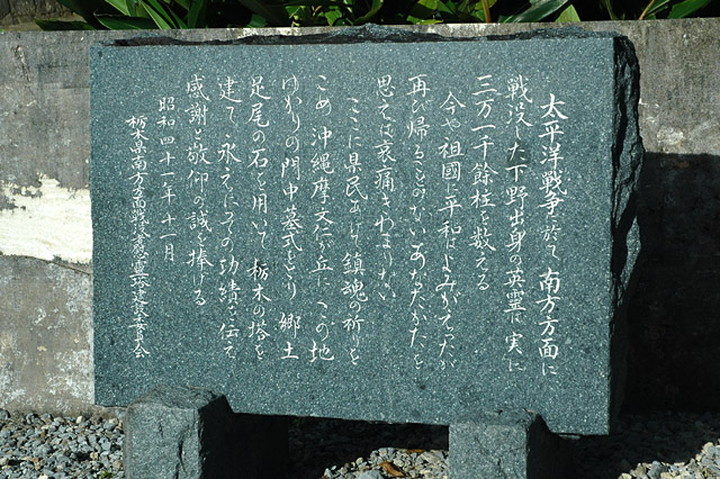 太平洋戰争に於て 南方方面に
戦没した下野出身の英霊は 実に
三万一千餘柱を数える
今や祖國に平和はよみがえったが
再び帰ることのないあなたがたを
思えば哀痛きわまりない
ここに県民あげて鎮魂の祈りを
こめ 沖縄摩文仁が丘に この地
ゆかりの門中墓式をとり 郷土
足尾の石を用いて 栃木の塔を
建てゝ永えにその功績を伝え
感謝と敬仰の誠を捧げる
昭和四十一年十一月
栃木県南方方面戦没者慰霊塔建設委員会